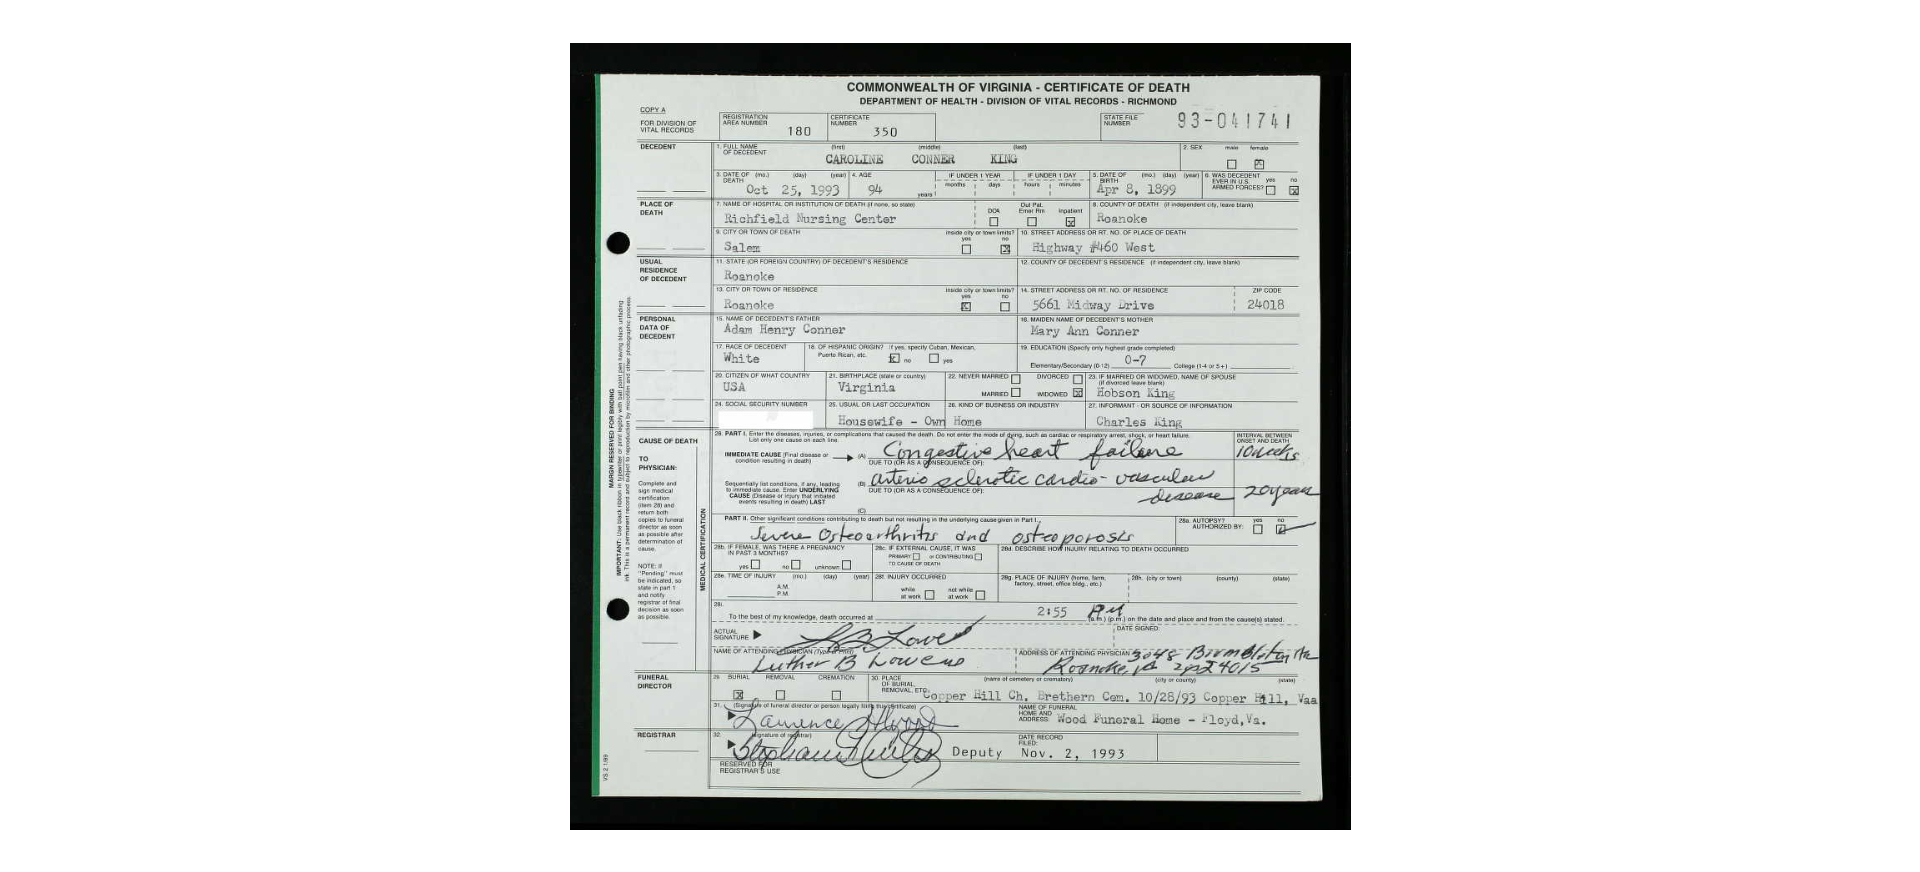 COMMONWEALTH OF VIRGINIA - CERTIFICATE OF DEATH
DEPARTMENT OF HEALTH - DIVISION OF VITAL RECORDS - RICHMOND
COPY A
FOR DIVISION OF VITAL RECORDS
REGISTRATION AREA NUMBER 180
CERTIFICATE NUMBER 350
STATE FILE NUMBER 93-041741
DECEDENT
1. FULL NAME OF DECEDENT (first) (middle) (last)
CAROLINE CONNER KING
2. SEX male female X
3. DATE OF DEATH (mo.) (day) (year) Oct 25, 1993
4. AGE 94 years
IF UNDER 1 YEAR months days
IF UNDER 1 DAY hours minutes
5. DATE OF BIRTH (mo.) (day) (year) Apr 8, 1899
6. WAS DECEDENT EVER IN U.S. ARMED FORCES? yes no X
PLACE OF DEATH
7. NAME OF HOSPITAL OR INSTITUTION OF DEATH (if none, so state)
Richfield Nursing Center
DOA Out Pat. Emer Rm Inpatient X
8. COUNTY OF DEATH (if independent city, leave blank)
Roanoke
9. CITY OR TOWN OF DEATH
Salem
inside city or town limits? yes no X
10. STREET ADDRESS OR RT. NO. OF PLACE OF DEATH
Highway #460 West
USUAL RESIDENCE OF DECEDENT
11. STATE (OR FOREIGN COUNTRY) OF DECEDENT'S RESIDENCE
Roanoke
12. COUNTY OF DECEDENT'S RESIDENCE (if independent city, leave blank)
13. CITY OR TOWN OF RESIDENCE
Roanoke
inside city or town limits? yes X no
14. STREET ADDRESS OR RT. NO. OF RESIDENCE
5661 Midway Drive
ZIP CODE
24018
PERSONAL DATA OF DECEDENT
15. NAME OF DECEDENT'S FATHER
Adam Henry Conner
16. MAIDEN NAME OF DECEDENT'S MOTHER
Mary Ann Conner
17. RACE OF DECEDENT
White
18. OF HISPANIC ORIGIN? If yes, specify Cuban, Mexican, Puerto Rican, etc. X no yes
19. EDUCATION (Specify only highest grade completed)
Elementary/Secondary (0-12) 0-7 College (1-4 or 5+)
20. CITIZEN OF WHAT COUNTRY
USA
21. BIRTHPLACE (state or country)
Virginia
22. NEVER MARRIED DIVORCED
MARRIED WIDOWED X
23. IF MARRIED OR WIDOWED, NAME OF SPOUSE (if divorced leave blank)
Hobson King
24. SOCIAL SECURITY NUMBER
25. USUAL OR LAST OCCUPATION
Housewife - Own Home
26. KIND OF BUSINESS OR INDUSTRY
27. INFORMANT - OR SOURCE OF INFORMATION
Charles King
CAUSE OF DEATH
TO PHYSICIAN:
Complete and sign medical certification (item 28) and return both copies to funeral director as soon as possible after determination of cause.
NOTE: If "Pending" must be indicated, so state in part 1 and notify registrar of final decision as soon as possible.
MEDICAL CERTIFICATION
28. PART I. Enter the diseases, injuries, or complications that caused the death. Do not enter the mode of dying, such as cardiac or respiratory arrest, shock, or heart failure.
List only one cause on each line.
INTERVAL BETWEEN ONSET AND DEATH
IMMEDIATE CAUSE (Final disease or condition resulting in death) (A) Congestive heart failure 10 weeks
DUE TO (OR AS A CONSEQUENCE OF):
Sequentially list conditions, if any, leading to immediate cause. Enter UNDERLYING CAUSE (Disease or injury that initiated events resulting in death) LAST
(B) arterio sclerotic cardio-vascular
DUE TO (OR AS A CONSEQUENCE OF):
disease 20 years
(C)
PART II. Other significant conditions contributing to death but not resulting in the underlying cause given in Part I.
Severe Osteoarthritis and osteoporosis
28a. AUTOPSY? AUTHORIZED BY: yes no
28b. IF FEMALE, WAS THERE A PREGNANCY IN PAST 3 MONTHS? yes no unknown
28c. IF EXTERNAL CAUSE, IT WAS PRIMARY or CONTRIBUTING TO CAUSE OF DEATH
28d. DESCRIBE HOW INJURY RELATING TO DEATH OCCURRED
28e. TIME OF INJURY (mo.) (day) (year) A.M. P.M.
28f. INJURY OCCURRED while at work not while at work
28g. PLACE OF INJURY (home, farm, factory, street, office bldg., etc.)
28h. (city or town) (county) (state)
28i.
To the best of my knowledge, death occurred at 2:55 PM (a.m.) (p.m.) on the date and place and from the cause(s) stated.
ACTUAL SIGNATURE L B Lowens
DATE SIGNED:
NAME OF ATTENDING PHYSICIAN (Type or Print)
Luther B Lowens
ADDRESS OF ATTENDING PHYSICIAN 3048 Brambleton Av
Roanoke, Va 24015
FUNERAL DIRECTOR
29. BURIAL X REMOVAL CREMATION
30. PLACE OF BURIAL, REMOVAL, ETC. (name of cemetery or crematory) (city or county) (state)
Copper Hill Ch. Brethern Cem. 10/28/93 Copper Hill, Vaa
31. (Signature of funeral director or person legally filing this certificate)
Laurence
NAME OF FUNERAL HOME AND ADDRESS: Wood Funeral Home - Floyd,Va.
REGISTRAR
32. (signature of registrar)
Deputy
DATE RECORD FILED:
Nov. 2, 1993
RESERVED FOR REGISTRAR'S USE
MARGIN RESERVED FOR BINDING
VS 2 1/89